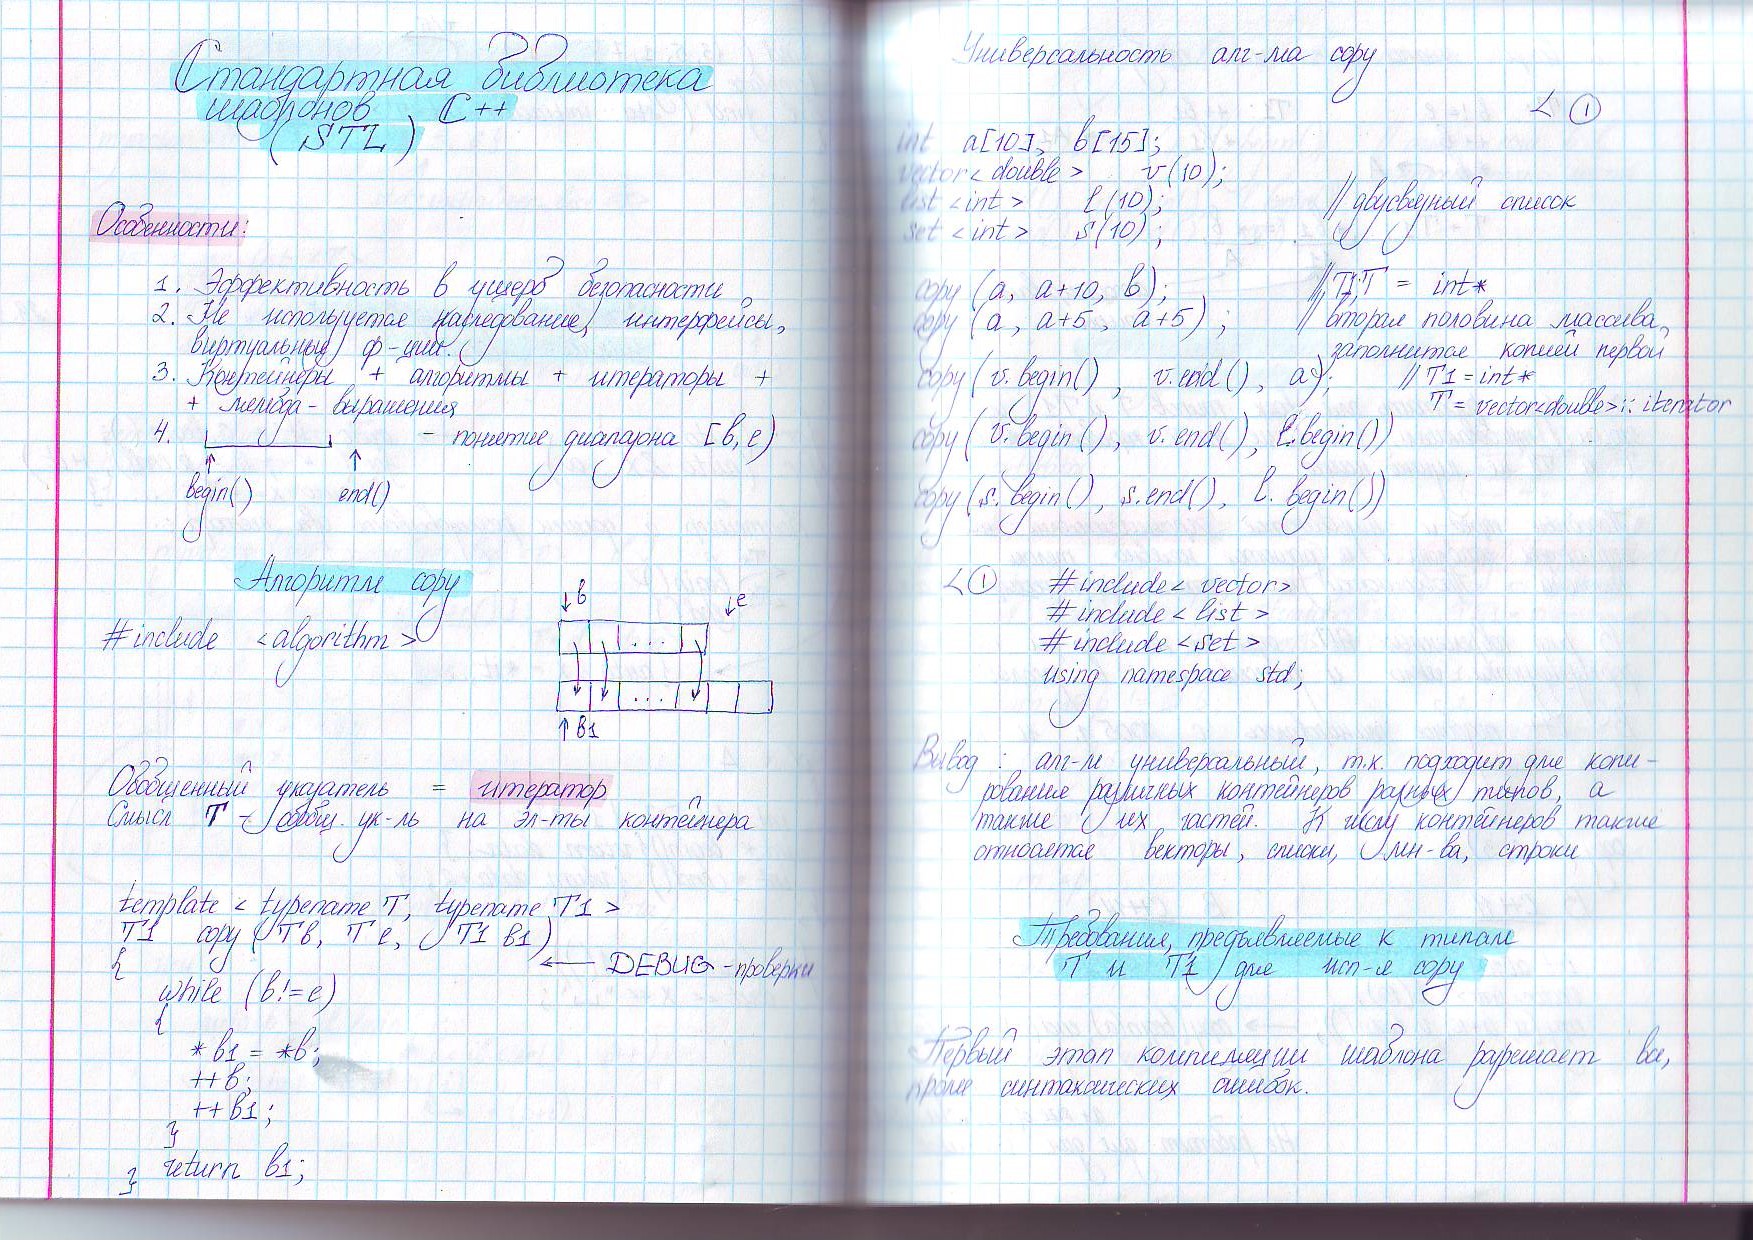 Стандартная библиотека
шаблонов C++
(STL)
Особенности:
1. Эффективность в ущерб безопасности
2. Не используется наследование, интерфейсы,
виртуальные ф-ции.
3. Контейнеры + алгоритмы + итераторы +
+ лямбда-выражения
4. - понятие диапазона [b, e)
begin() end()
Алгоритм copy
#include <algorithm>
b e
...
...
b1
Обобщенный указатель = итератор
Смысл T - обобщ. ук-ль на эл-ты контейнера
template < typename T, typename T1 >
T1 copy (T b, T e, T1 b1)
{ ← DEBUG - проверки
while (b != e)
{
*b1 = *b;
++b;
++b1;
}
return b1;
}
Универсальность алг-ма copy
< ①
int a[10], b[15];
vector<double> v(10);
list <int> l(10); // двусвязный список
set <int> s(10);
copy (a, a+10, b); // T1,T = int*
copy (a, a+5, a+5); // вторая половина массива,
заполнится копией первой
copy (v.begin(), v.end(), a); // T1 = int*
T = vector<double>:: iterator
copy (v.begin(), v.end(), l.begin())
copy (s.begin(), s.end(), l.begin())
< ① #include < vector>
#include < list >
#include <set>
using namespace std;
Вывод: алг-м универсальный, т.к. подходит для копи-
рования различных контейнеров разных типов, а
также их частей. К числу контейнеров также
относятся векторы, списки, мн-ва, строки
Требования, предъявляемые к типам
T и T1 для исп-я copy
Первый этап компиляции шаблона разрешает все,
кроме синтаксических ошибок.